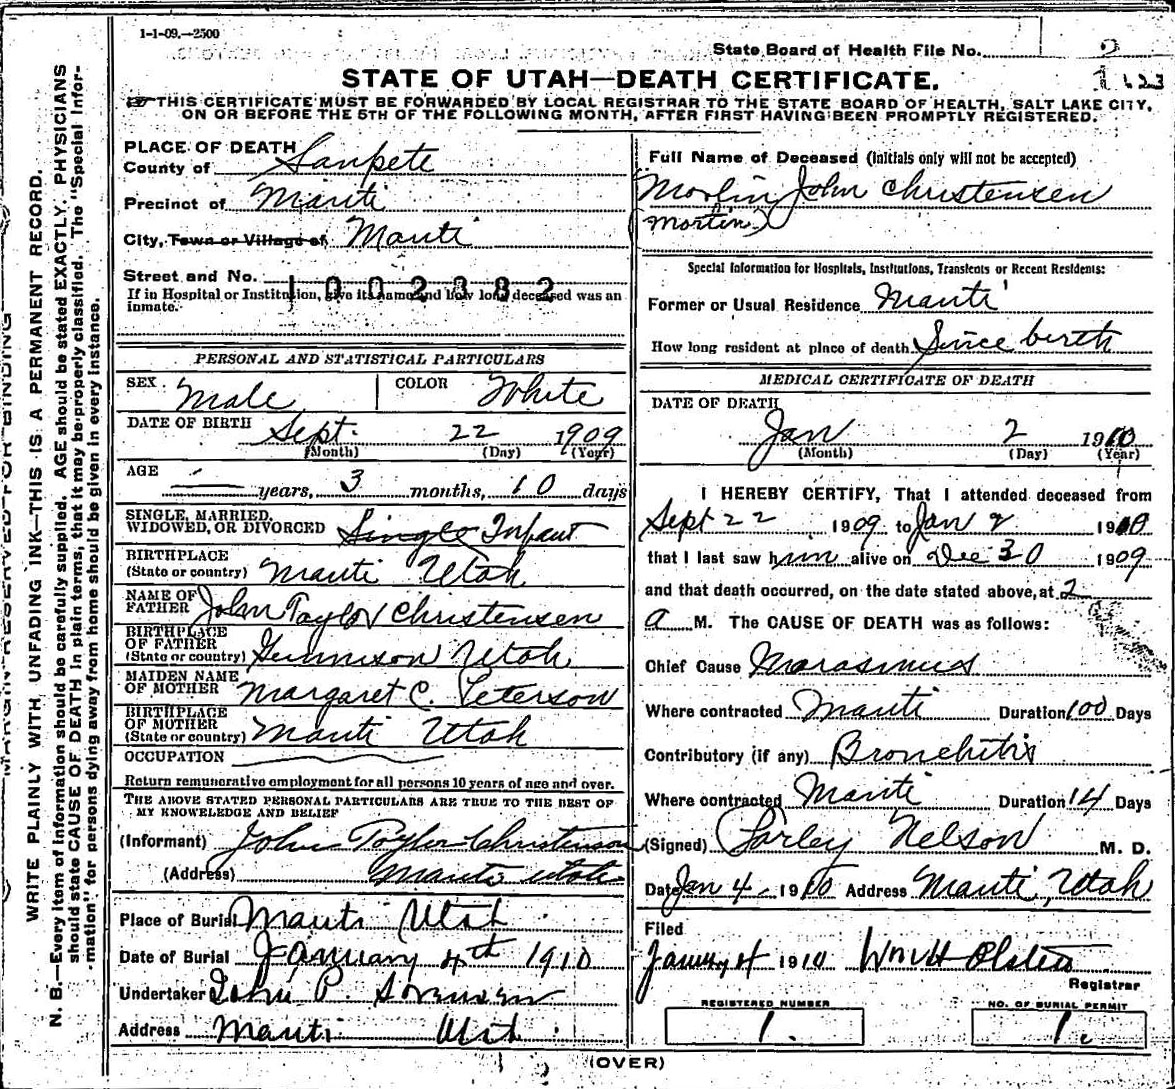 1-1-09.—2500
State Board of Health File No.
2
STATE OF UTAH—DEATH CERTIFICATE.
☞ THIS CERTIFICATE MUST BE FORWARDED BY LOCAL REGISTRAR TO THE STATE BOARD OF HEALTH, SALT LAKE CITY,
ON OR BEFORE THE 5TH OF THE FOLLOWING MONTH, AFTER FIRST HAVING BEEN PROMPTLY REGISTERED.
WRITE PLAINLY WITH UNFADING INK—THIS IS A PERMANENT RECORD.
N. B.—Every item of information should be carefully supplied. AGE should be stated EXACTLY. PHYSICIANS
should state CAUSE OF DEATH in plain terms, that it may be properly classified. The "Special Infor-
mation" for persons dying away from home should be given in every instance.
PLACE OF DEATH
County of Sanpete
Precinct of Manti
City, Town or Village of Manti
Street and No.
1002382
If in Hospital or Institution, give its name and how long deceased was an
inmate.
PERSONAL AND STATISTICAL PARTICULARS
SEX. Male COLOR White
DATE OF BIRTH Sept. 22 1909
(Month) (Day) (Year)
AGE — years, 3 months, 10 days
SINGLE, MARRIED,
WIDOWED, OR DIVORCED Single Infant
BIRTHPLACE
(State or country) Manti Utah
NAME OF
FATHER John Taylor Christensen
BIRTHPLACE
OF FATHER
(State or country) Gunnison Utah
MAIDEN NAME
OF MOTHER Margaret C. Peterson
BIRTHPLACE
OF MOTHER
(State or country) Manti Utah
OCCUPATION
Return remunerative employment for all persons 10 years of age and over.
THE ABOVE STATED PERSONAL PARTICULARS ARE TRUE TO THE BEST OF
MY KNOWLEDGE AND BELIEF
(Informant) John Taylor Christenson
(Address) Manti Utah
Place of Burial Manti Utah
Date of Burial January 4th 1910
Undertaker John P. Sorensen
Address Manti Utah
Full Name of Deceased (Initials only will not be accepted)
Morlin John Christensen
(Morten)
Special Information for Hospitals, Institutions, Transients or Recent Residents:
Former or Usual Residence Manti
How long resident at place of death Since birth
MEDICAL CERTIFICATE OF DEATH
DATE OF DEATH
Jan 2 1910
(Month) (Day) (Year)
I HEREBY CERTIFY, That I attended deceased from
Sept 22 1909 to Jan 2 1910
that I last saw him alive on Dec 30 1909
and that death occurred, on the date stated above, at 2
a M. The CAUSE OF DEATH was as follows:
Chief Cause Marasmus
Where contracted Manti Duration 100 Days
Contributory (if any) Bronchitis
Where contracted Manti Duration 14 Days
(Signed) Farley Nelson M. D.
Date Jan 4 1910 Address Manti, Utah
Filed
January 4 1910
Registrar
REGISTERED NUMBER
1.
NO. OF BURIAL PERMIT
1.
(OVER)